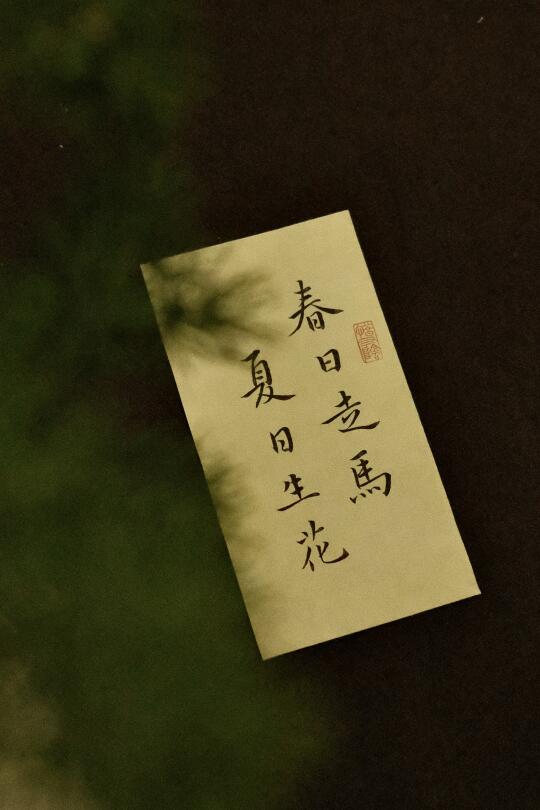 春日走馬
夏日生花